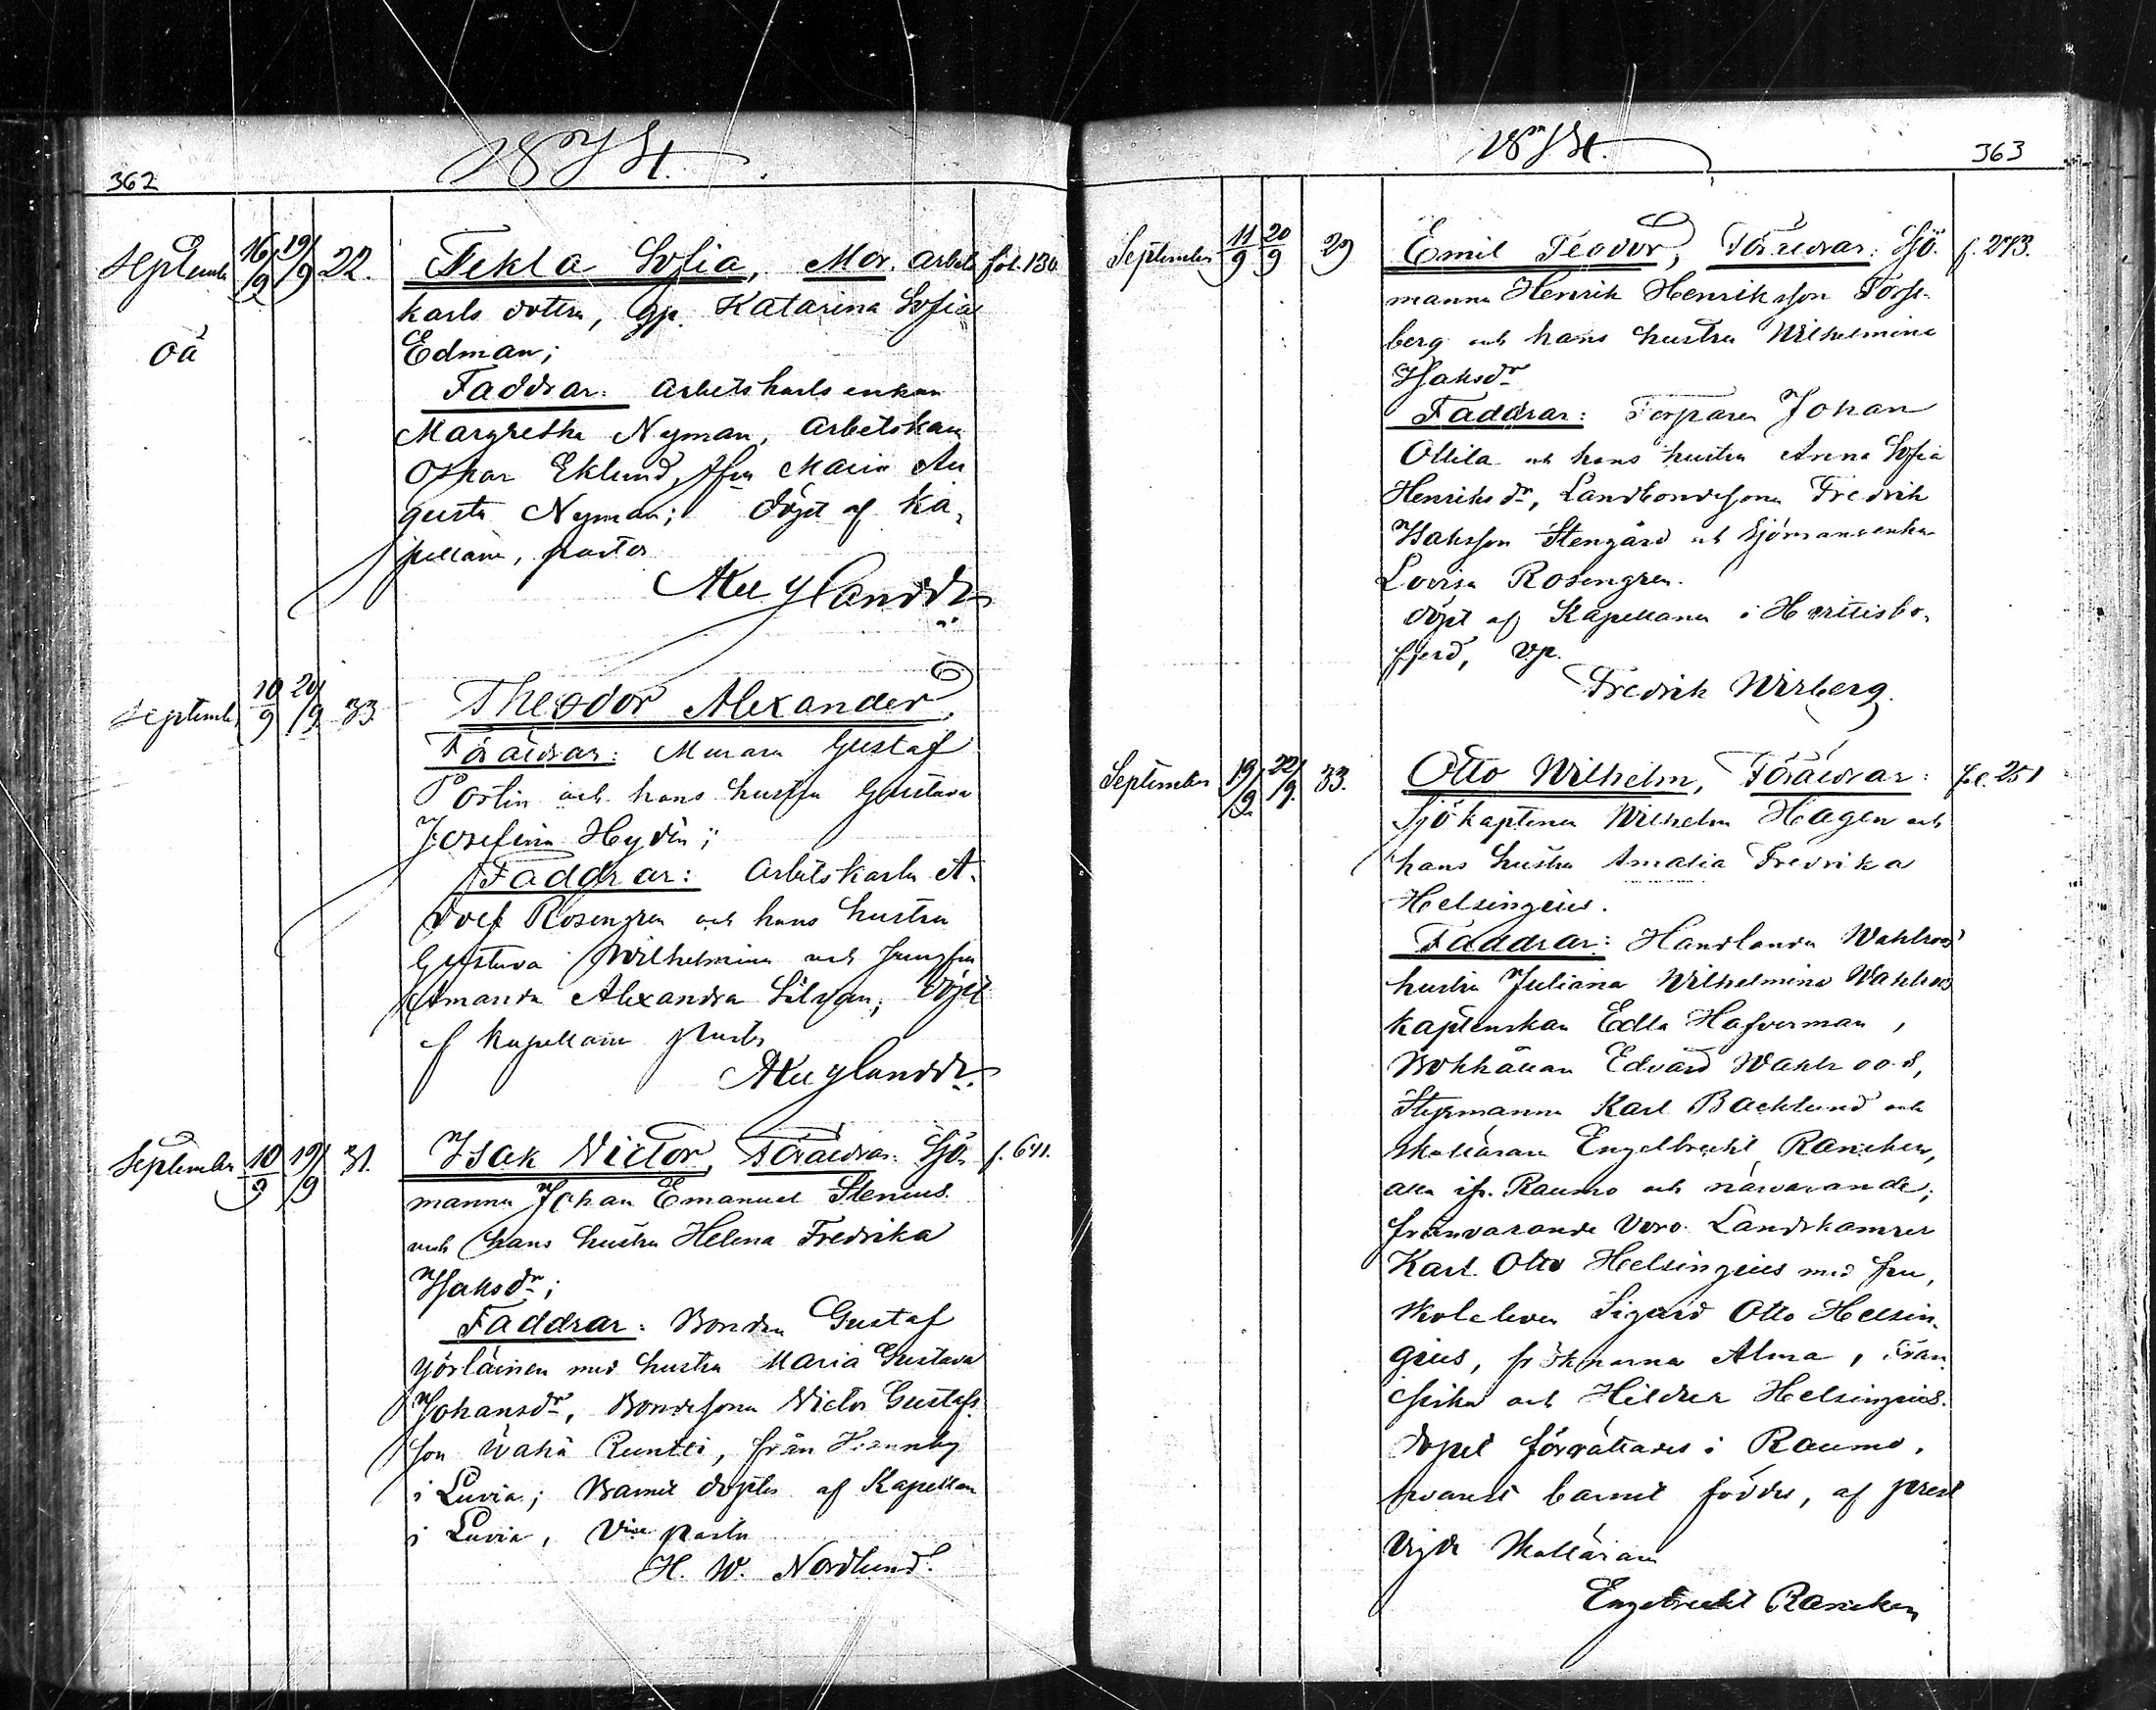 362
1874.
September 16/9 19/9 22. Tekla Sofia, Mor. arbets fol. 130
oä
karls dottren, gp. Katarina Sofia
Edman;
Faddrar: arbetskarls enkan
Margretha Nyman, arbetskarl
Oskar Eklund, Jfrn Maria Au
gusta Nyman; döpt af Ka,
pellanen, pastor
September 10/9 20/9 33. Theodor Alexander,
Föräldrar: Muraren Gustaf
Portin och hans hustru Gustava
Josefina Hydén;
Faddrar: Arbetskarlen A.
dolf Rosengren och hans hustru
Gustava Wilhelmina och Jungfrun
Amanda Alexandra Silvan; döpt
af Kapellanen Pastor
September 10/9 19/9 31. Isak Victor, Föräldrar: Sjö- f. 641.
mannen Johan Emanuel Stenius
och hans hustru Helena Fredrika
Isaksdr;
Faddrar: Bonden Gustaf
Yörläinen med hustru Maria Gustava
Johansdr, Bondesonen Victor Gustafs
son Wähä Runtti, från Hannby
i Luvia; Barnet döptes af Kapellan
i Luvia, Vice pastor
H. W. Nordlund.
1874.
363
September 11/9 20/9 29 Emil Teodor, Föräldrar: Sjö- f. 273.
mannen Henrik Henriksson Forss-
berg och hans hustru Wilhelmina
Isaksdr
Faddrar: Torparen Johan
Ollila och hans hustru Anna Sofia
Henriksdr, Landbondesonen Fredrik
Isaksson Stengård och Sjömansenkan
Lovisa Rosengren.
döpt af Kapellanen i Hvittisbo-
fjerd, vp.
Fredrik Wirberg.
September 19/9 22/9 33. Otto Wilhelm, Föräldrar: fol. 251
Sjökaptenen Wilhelm Hagen och
hans hustru Amalia Fredrika
Helsingius.
Faddrar: Handlanden Wahlroos'
hustru Juliana Wilhelmina Wahlroos
kaptenskan Edla Hafverman,
Bokhållaren Edvard Wahlroos,
Styrmannen Karl Backlund och
Skolläraren Engelbrecht Rancken,
alla ifr. Raumo och närvarande;
frånvarande voro Landskamrer
Karl Otto Helsingius med fru,
Skoleleven Sigurd Otto Helsin-
gius, fröknarna Alma, Fran
ciska och Hildur Helsingius.
Dopet förrättades i Raumo,
hvarest barnet föddes, af prest
vigde Skolläraren
Engelbrecht Rancken